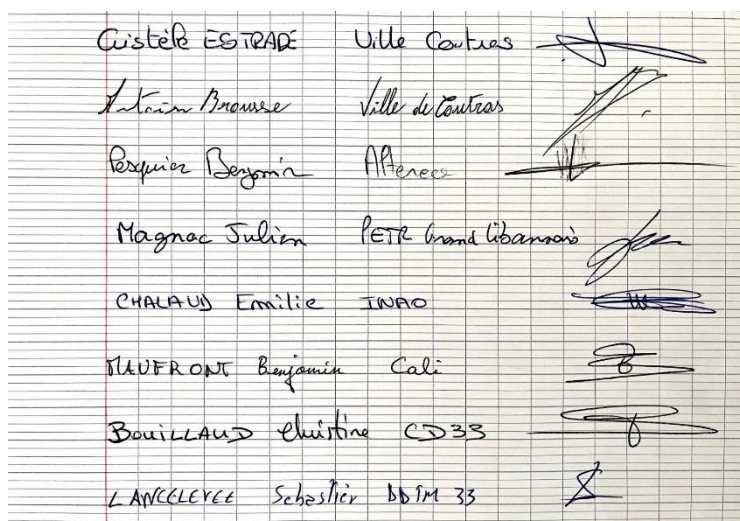 Cristèle ESTRADE Ville Coutras
Antoin Brousse Ville de Coutras
Pesquier Benjamin Alterea
Magnac Julien PETR Grand Libournais
CHALAUD Emilie INAO
MAUFRONT Benjamin Cali
BOUILLAUD Christine CD33
LANCELEVEE Sébastien DDTM 33